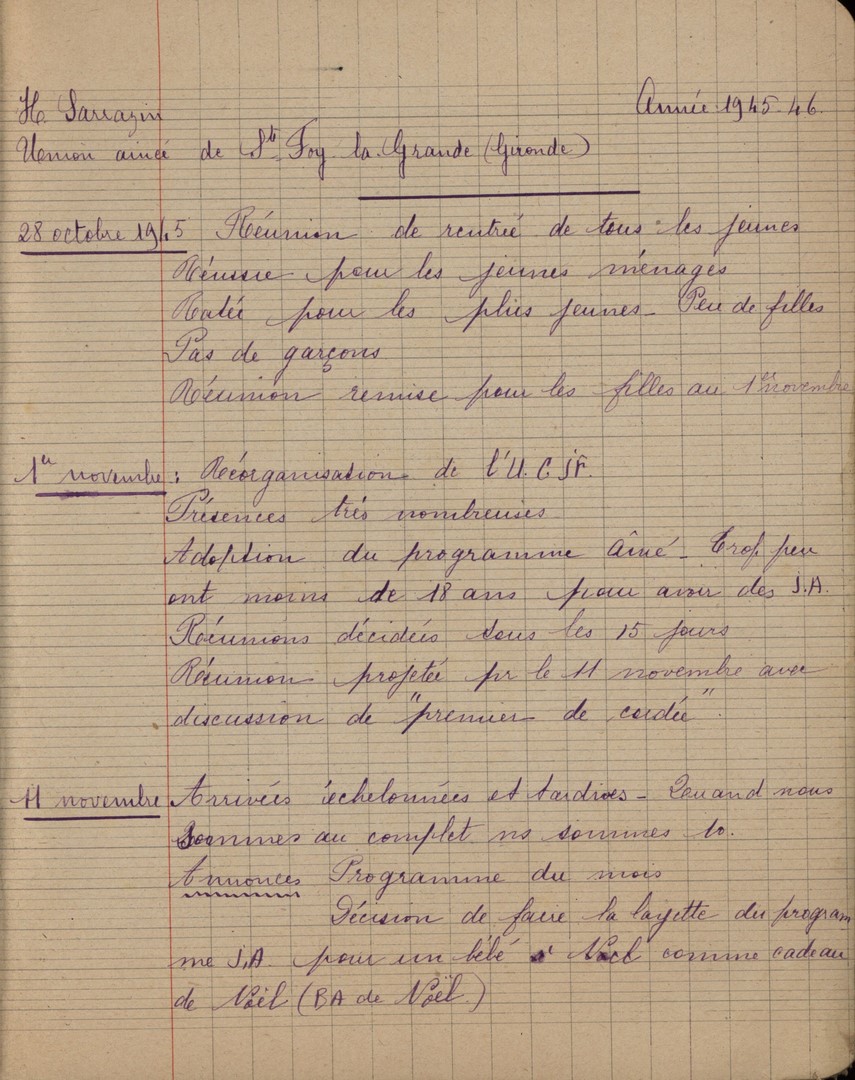 H. Sarrazin
Année 1945-46.
Union ainée de Ste Foy la Grande (Gironde)
28 octobre 1945 Réunion de rentrée de tous les jeunes
Réussie pour les jeunes ménages
Ratée pour les plus jeunes - Peu de filles
Pas de garçons
Réunion remise pour les filles au 1er novembre
1er novembre : Réorganisation de l'U.C.J.F.
Présences très nombreuses
Adoption du programme aîné - Trop peu
ont moins de 18 ans pour avoir des J.A.
Réunions décidées tous les 15 jours
Réunion projetée pr le 11 novembre avec
discussion de "premier de cordée".
11 novembre Arrivées échelonnées et tardives - Quand nous
sommes au complet ns sommes 10.
Annonces Programme du mois
Décision de faire la layette du program
me J.A. pour un bébé Noël comme cadeau
de Noël (BA de Noël)